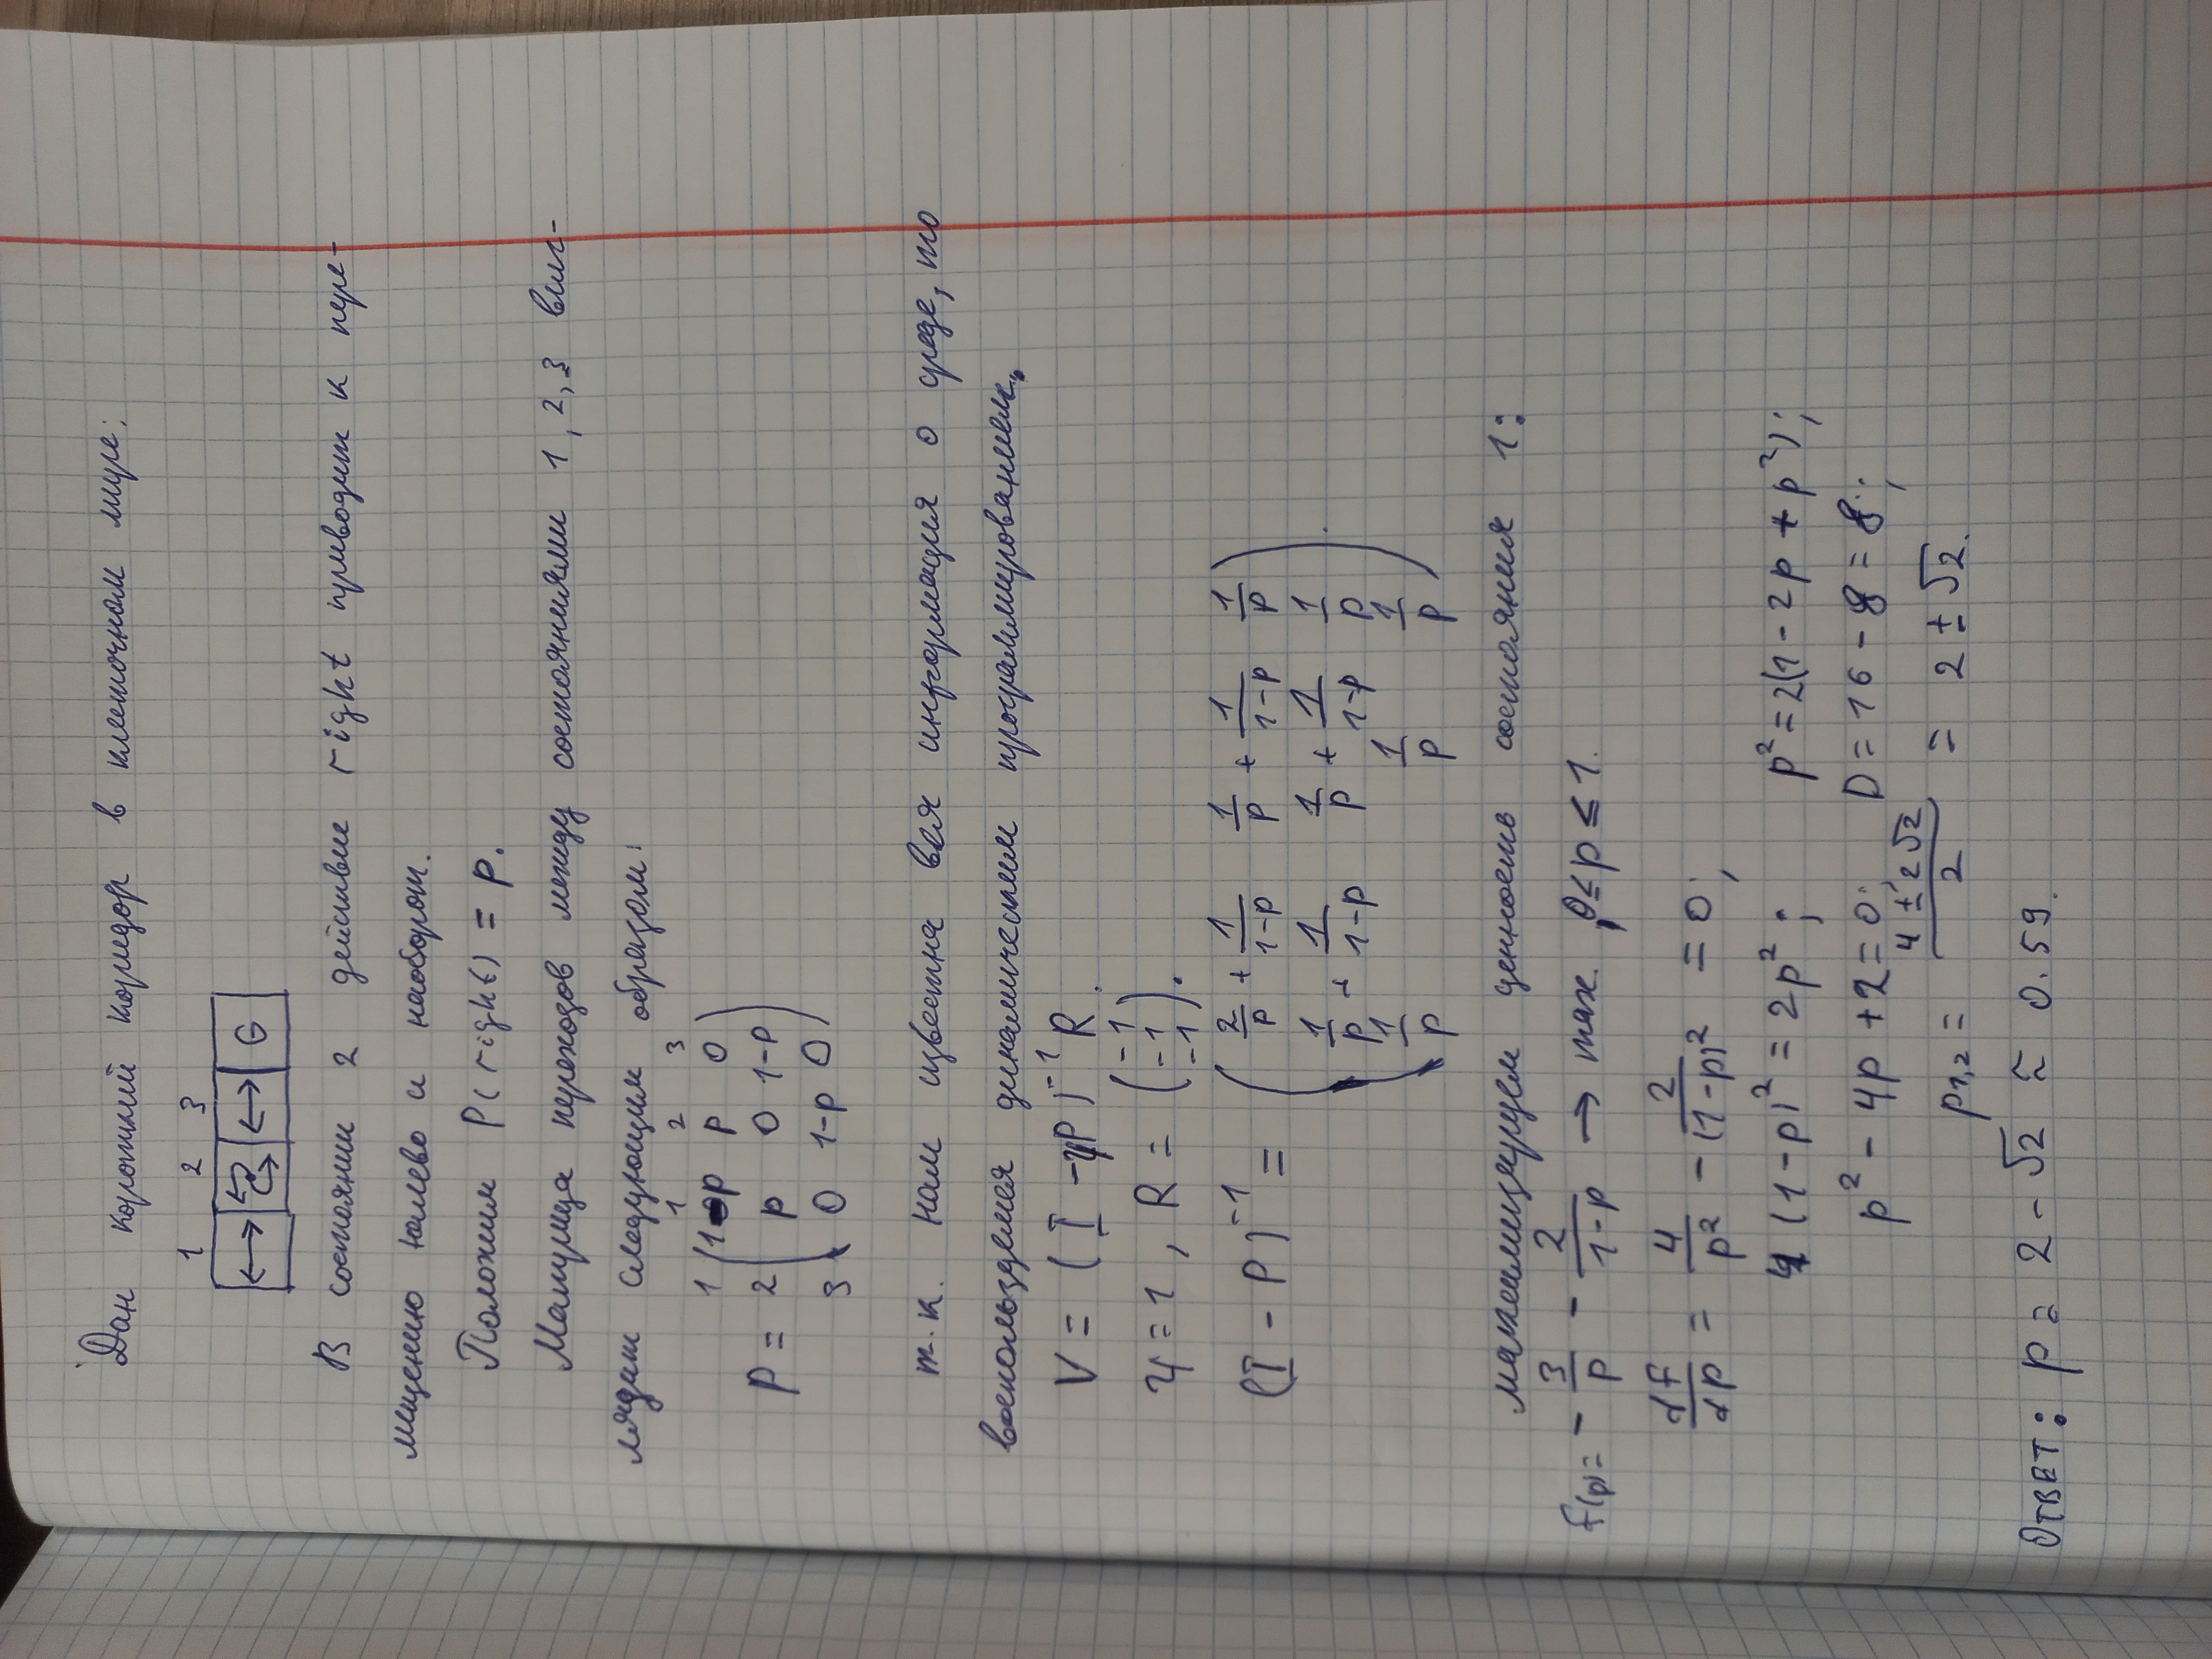 Дан короткий коридор в клеточном мире:
1 2 3
G
В состоянии 2 действие right приводит к пере-
мещению налево и наоборот.
Положим P(right) = p.
Матрица переходов между состояниями 1, 2, 3 выг-
лядит следующим образом:
1 2 3
1 1-p p 0
P = 2 p 0 1-p
3 0 1-p 0
т.к. нам известна вся информация о среде, то
воспользуемся динамическим программированием.
V = (I - γP)⁻¹ R.
γ = 1, R = (-1 -1 -1).
(I - P)⁻¹ =
2/p + 1/(1-p) 1/p + 1/(1-p) 1/p
1/p + 1/(1-p) 1/p + 1/(1-p) 1/p
1/p 1/p 1/p
максимизируем ценность состояния 1:
f(p) = - 3/p - 2/(1-p) → max. 0 ≤ p ≤ 1.
df/dp = 4/p² - 2/(1-p)² = 0;
4(1-p)² = 2p²; p² = 2(1 - 2p + p²);
p² - 4p + 2 = 0; D = 16 - 8 = 8;
p1,2 = (4 ± 2√2)/2 = 2 ± √2.
Ответ: p = 2 - √2 ≈ 0.59.